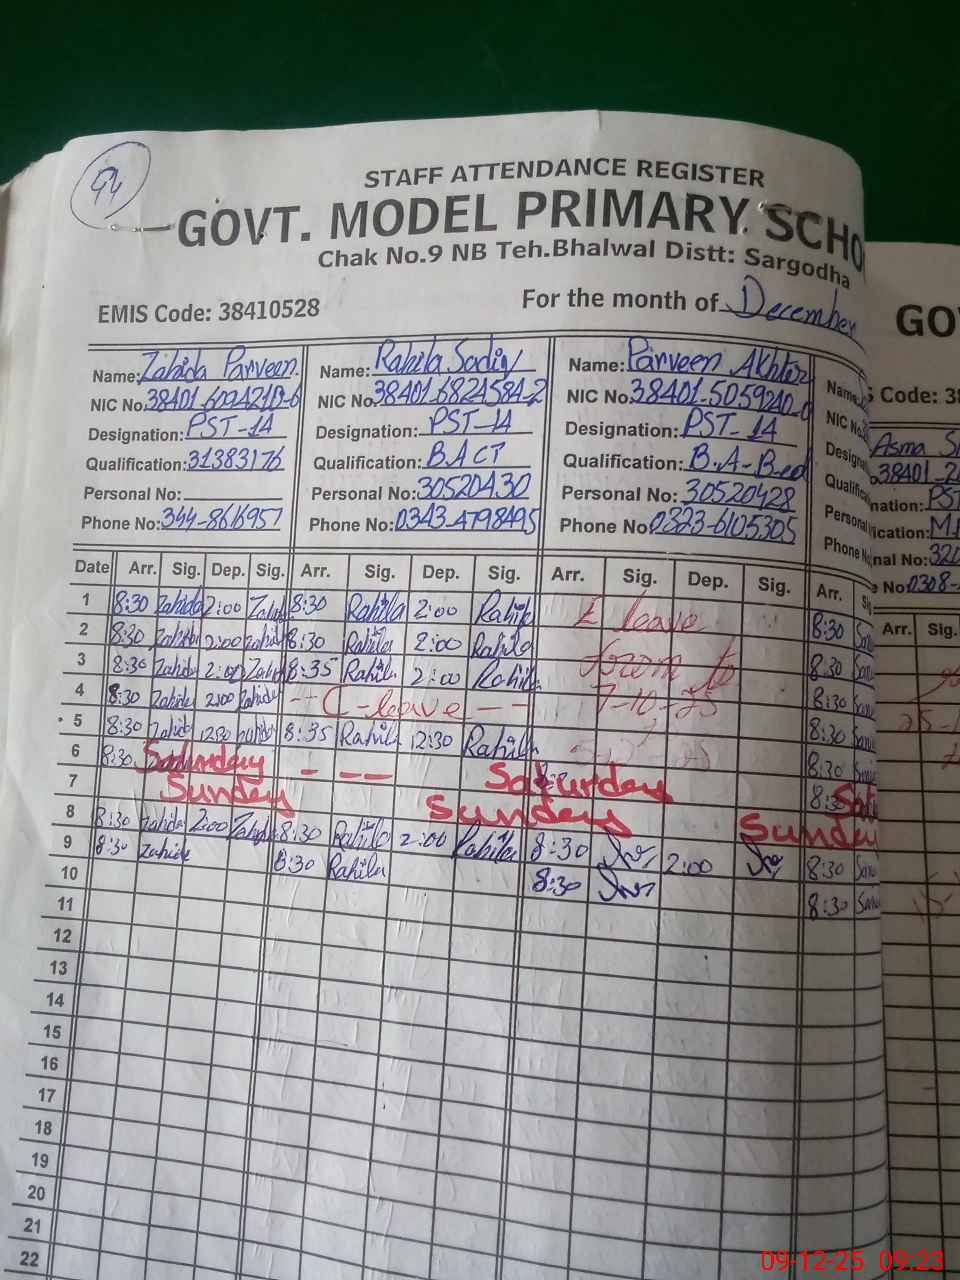 94
STAFF ATTENDANCE REGISTER
GOVT. MODEL PRIMARY SCHO
Chak No.9 NB Teh.Bhalwal Distt: Sargodha
EMIS Code: 38410528
For the month of December
Name: Zahida Parveen
NIC No.
Designation: PST-14
Qualification: 31383176
Personal No:
Phone No: 344-8616957
Name: Rahila
NIC No. 38401-6824584-2
Designation: PST-14
Qualification: B.A CT
Personal No: 30520430
Phone No: 0343-4798495
Name: Parveen Akhtar
NIC No: 38401-5059240-0
Designation: PST-14
Qualification: B.A-Bed
Personal No: 30520428
Phone No: 0323-6105305
Name:
NIC No
Designa
Qualifica
Personal
Phone N
Date Arr. Sig. Dep. Sig. Arr. Sig. Dep. Sig. Arr. Sig. Dep. Sig. Arr. Sig
1 8:30 Zahida 2:00 Zahida 8:30 Rahila 2:00 Rahila E leave 8:30
2 8:30 Zahida 2:00 Zahida 8:30 Rahila 2:00 Rahila from to 8:30
3 8:30 Zahida 2:00 Zahida 8:35 Rahila 2:00 Rahila 7-10-25 8:30
4 8:30 Zahida 2:00 Zahida -- C-leave -- 8:30
5 8:30 Zahida 12:30 Zahida 8:35 Rahila 12:30 Rahila 8:30
6 8:30 Saturday - -- Saturday 8:30
7 Sunday Sunday Sunday
8 8:30 Zahida 2:00 Zahida 8:30 Rahila 2:00 Rahila 8:30 2:00 8:30
9 8:30 Zahida 8:30 Rahila 8:30 8:30
10
11
12
13
14
15
16
17
18
19
20
21
22
GO
S Code: 3
Asma
38401-2
nation: PST
ication: M.
nal No: 320
e No: 0308-
Arr. Sig.
09-12-25 09:23